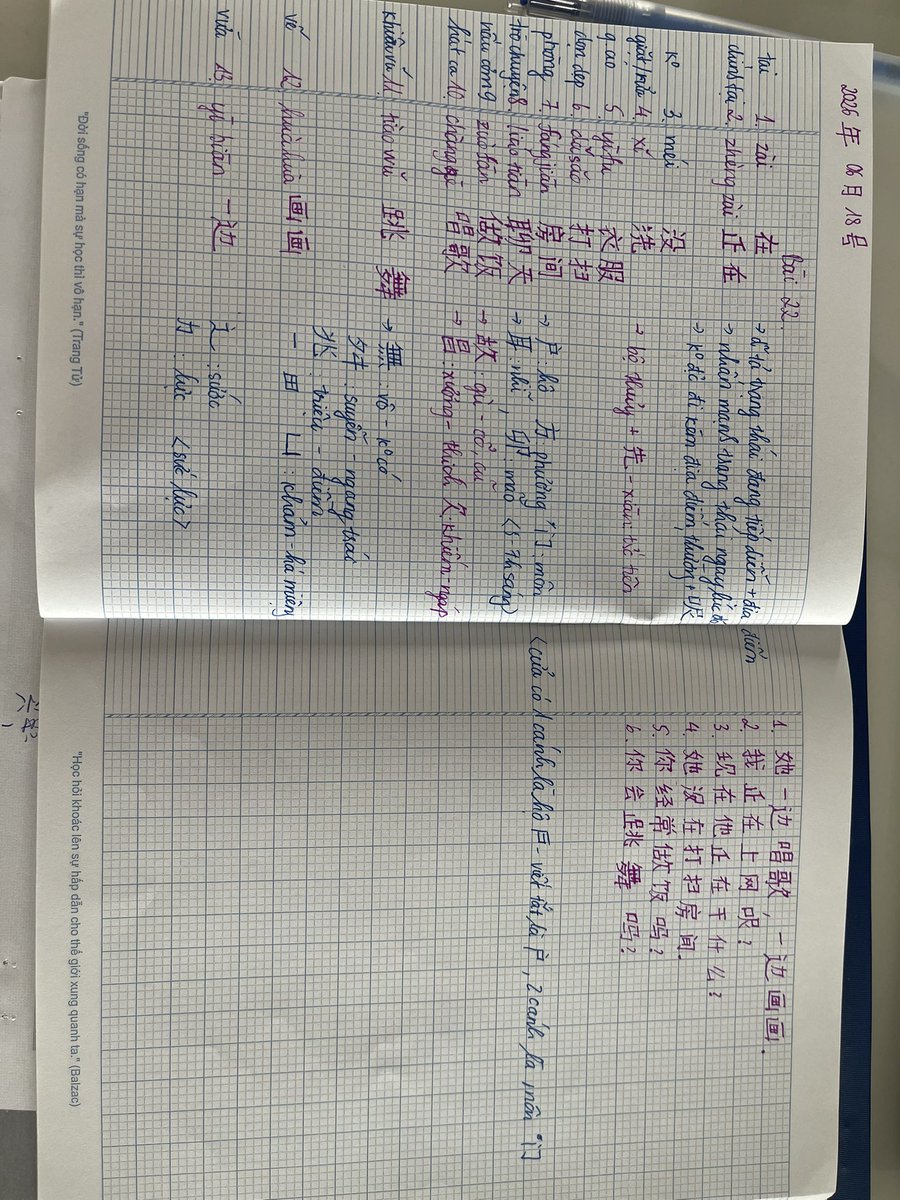 2025 年 06月 18号
Bài 22.
tại 1. zài 在 → d tả trạng thái đang tiếp diễn + địa điểm
đang tại 2. zhèng zài 正在 → nhấn mạnh trạng thái ngay lúc đó
→ k° đc đi kèm địa điểm, thường + 呢
k° 3. méi 没
giặt/rửa 4. xǐ 洗 → bộ thủy + 先 - xiān: trc tiên
q.áo 5. yīfu 衣服
dọn dẹp 6. dǎsǎo 打扫
phòng 7. fángjiān 房间 → 户: hộ 方 phương 门: môn
trò chuyện 8. liáo tiān 聊天 → 耳: nhĩ, 卯 mão
nấu cơm 9. zuò fàn 做饭 → 故: gù - cố, cũ
hát ca 10. chànggē 唱歌 → 昌 xướng - thịnh 欠: khiếm - ngáp
khiêu vũ 11. tiào wǔ 跳舞 → 無: vô - k° có
舛: suyễn - ngang trái
兆: triệu - điềm
vẽ 12. huà huà 画画 一 田 凵: khảm - há miệng
vừa 13. yī biān 一边 辶: sước
力: lực <sức lực>
"Đời sống có hạn mà sự học thì vô hạn." (Trang Tử)
1. 她一边唱歌, 一边画画.
2. 我正在上网呢?
3. 现在他正在干什么?
4. 她没在打扫房间.
5. 你经常做饭吗?
6. 你会跳舞吗?
<cửa có 1 cánh là hộ 戶 - viết tắt là 户, 2 cánh là môn 门
"Học hỏi khoác lên sự hấp dẫn cho thế giới xung quanh ta." (Balzac)